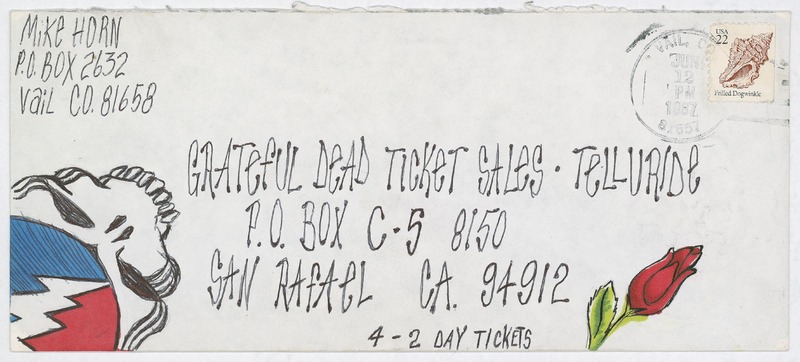 MIKE HORN
P.O. BOX 2632
Vail CO. 81658
VAIL, C
JUN
12
PM
1987
81657
USA
22
Frilled Dogwinkle
GRATEFUL DEAD TICKET SALES · TELLURIDE
P.O. BOX C-S 8150
SAN RAFAEL CA. 94912
4-2 DAY TICKETS